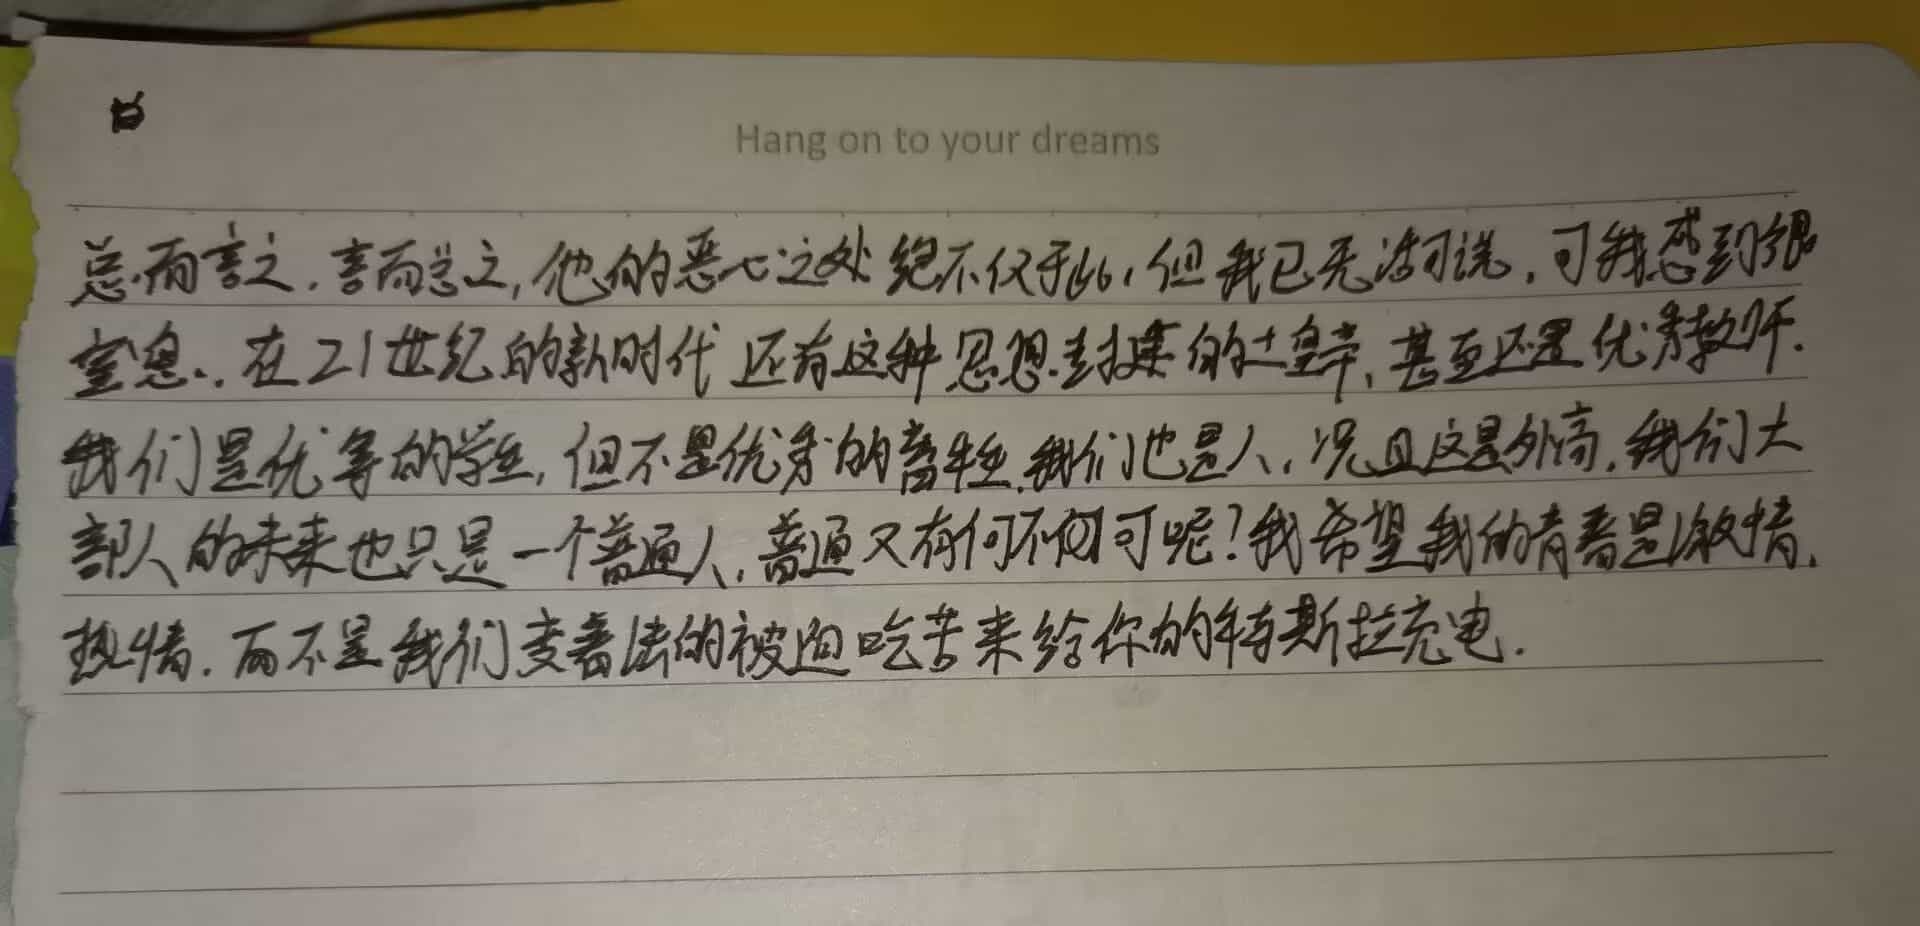 Hang on to your dreams
总而言之,言而总之,他的恶心之处绝不仅于此,但我已无话可说,可我感到很
窒息..在21世纪的新时代还有这种思想封建的土皇帝,甚至还是优秀教师.
我们是优等的学生,但不是优秀的畜牲.我们也是人,况且这是外高,我们大
部人的未来也只是一个普通人,普通又有何不可呢?我希望我的青春是激情,
热情.而不是我们变着法的被迫吃苦来给你的特斯拉充电.